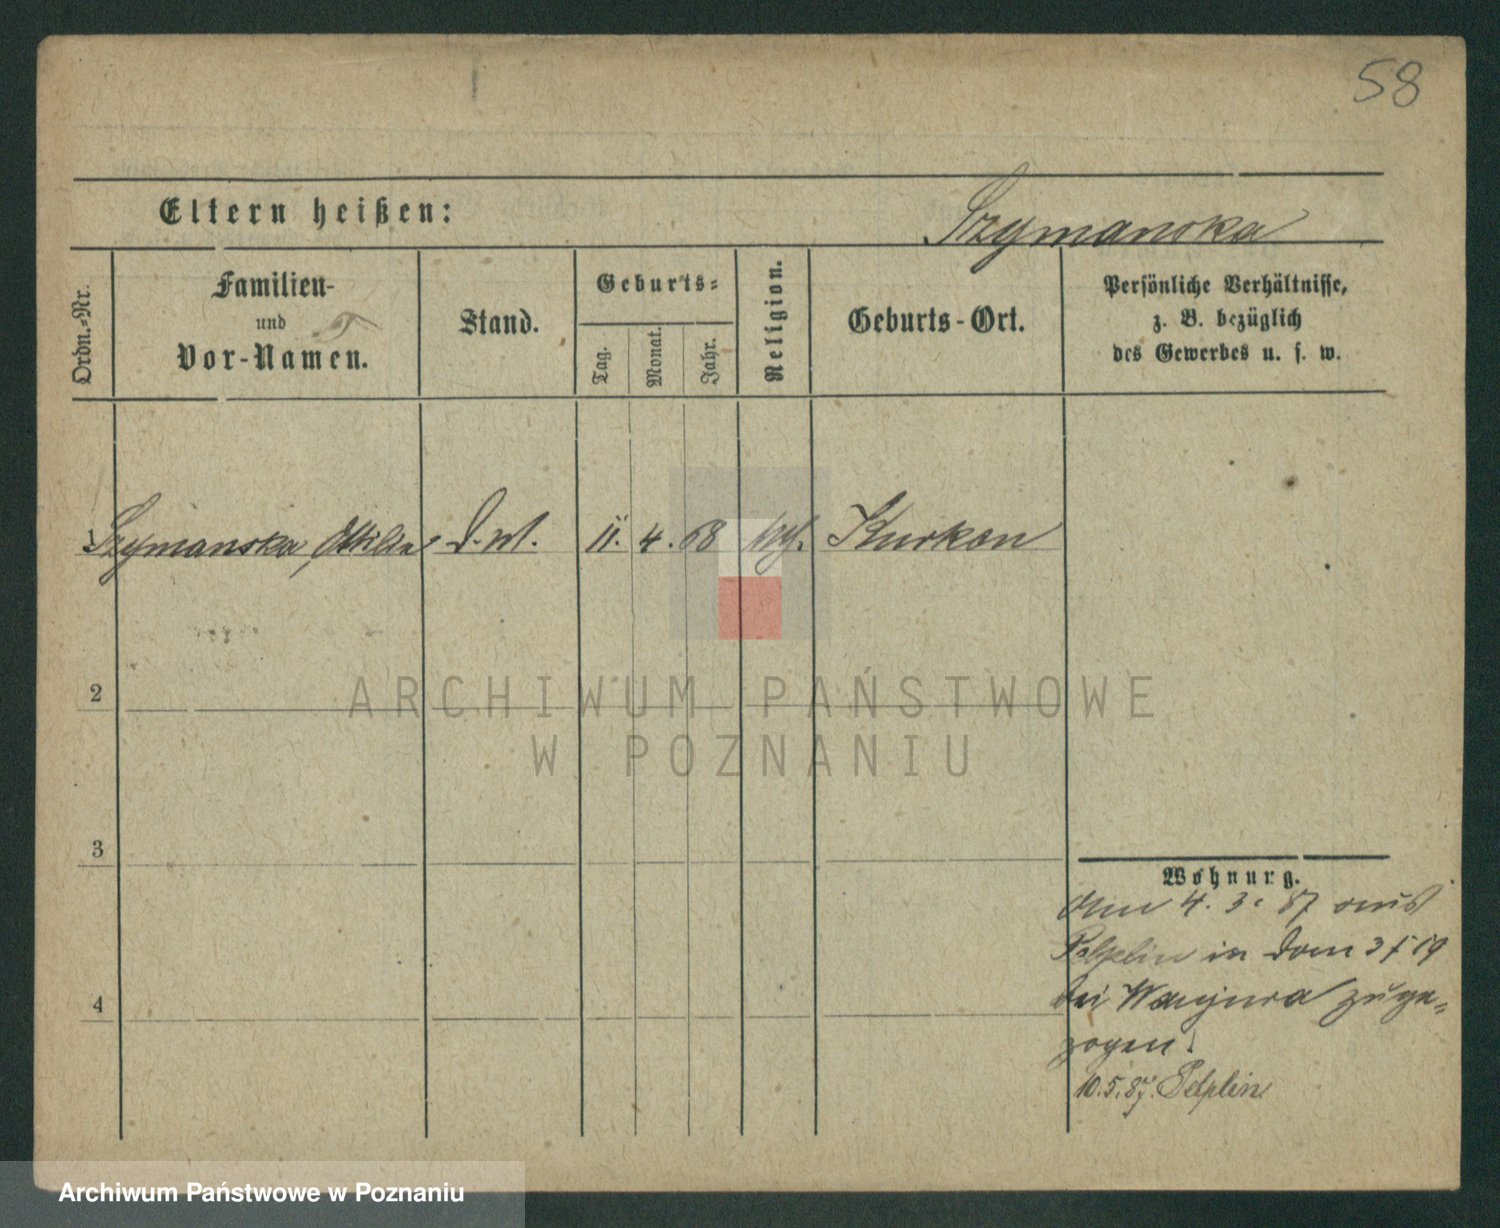 58
Eltern heißen:
Szymanska
Ordn.-Nr.
Familien-
und
Vor-Namen.
Stand.
Geburts-
Tag.
Monat.
Jahr.
Religion.
Geburts-Ort.
Persönliche Verhältnisse,
z. B. bezüglich
des Gewerbes u. s. w.
1 Szymanska, Ottilia
11. 4. 68
Kurkau
2
ARCHIWUM PAŃSTWOWE
W POZNANIU
3
Wohnung.
Am 4. 3. 87 aus
Pelplin in Dom 3/19
bei zuge-
zogen.
4
10.5.87. Pelplin
Archiwum Państwowe w Poznaniu